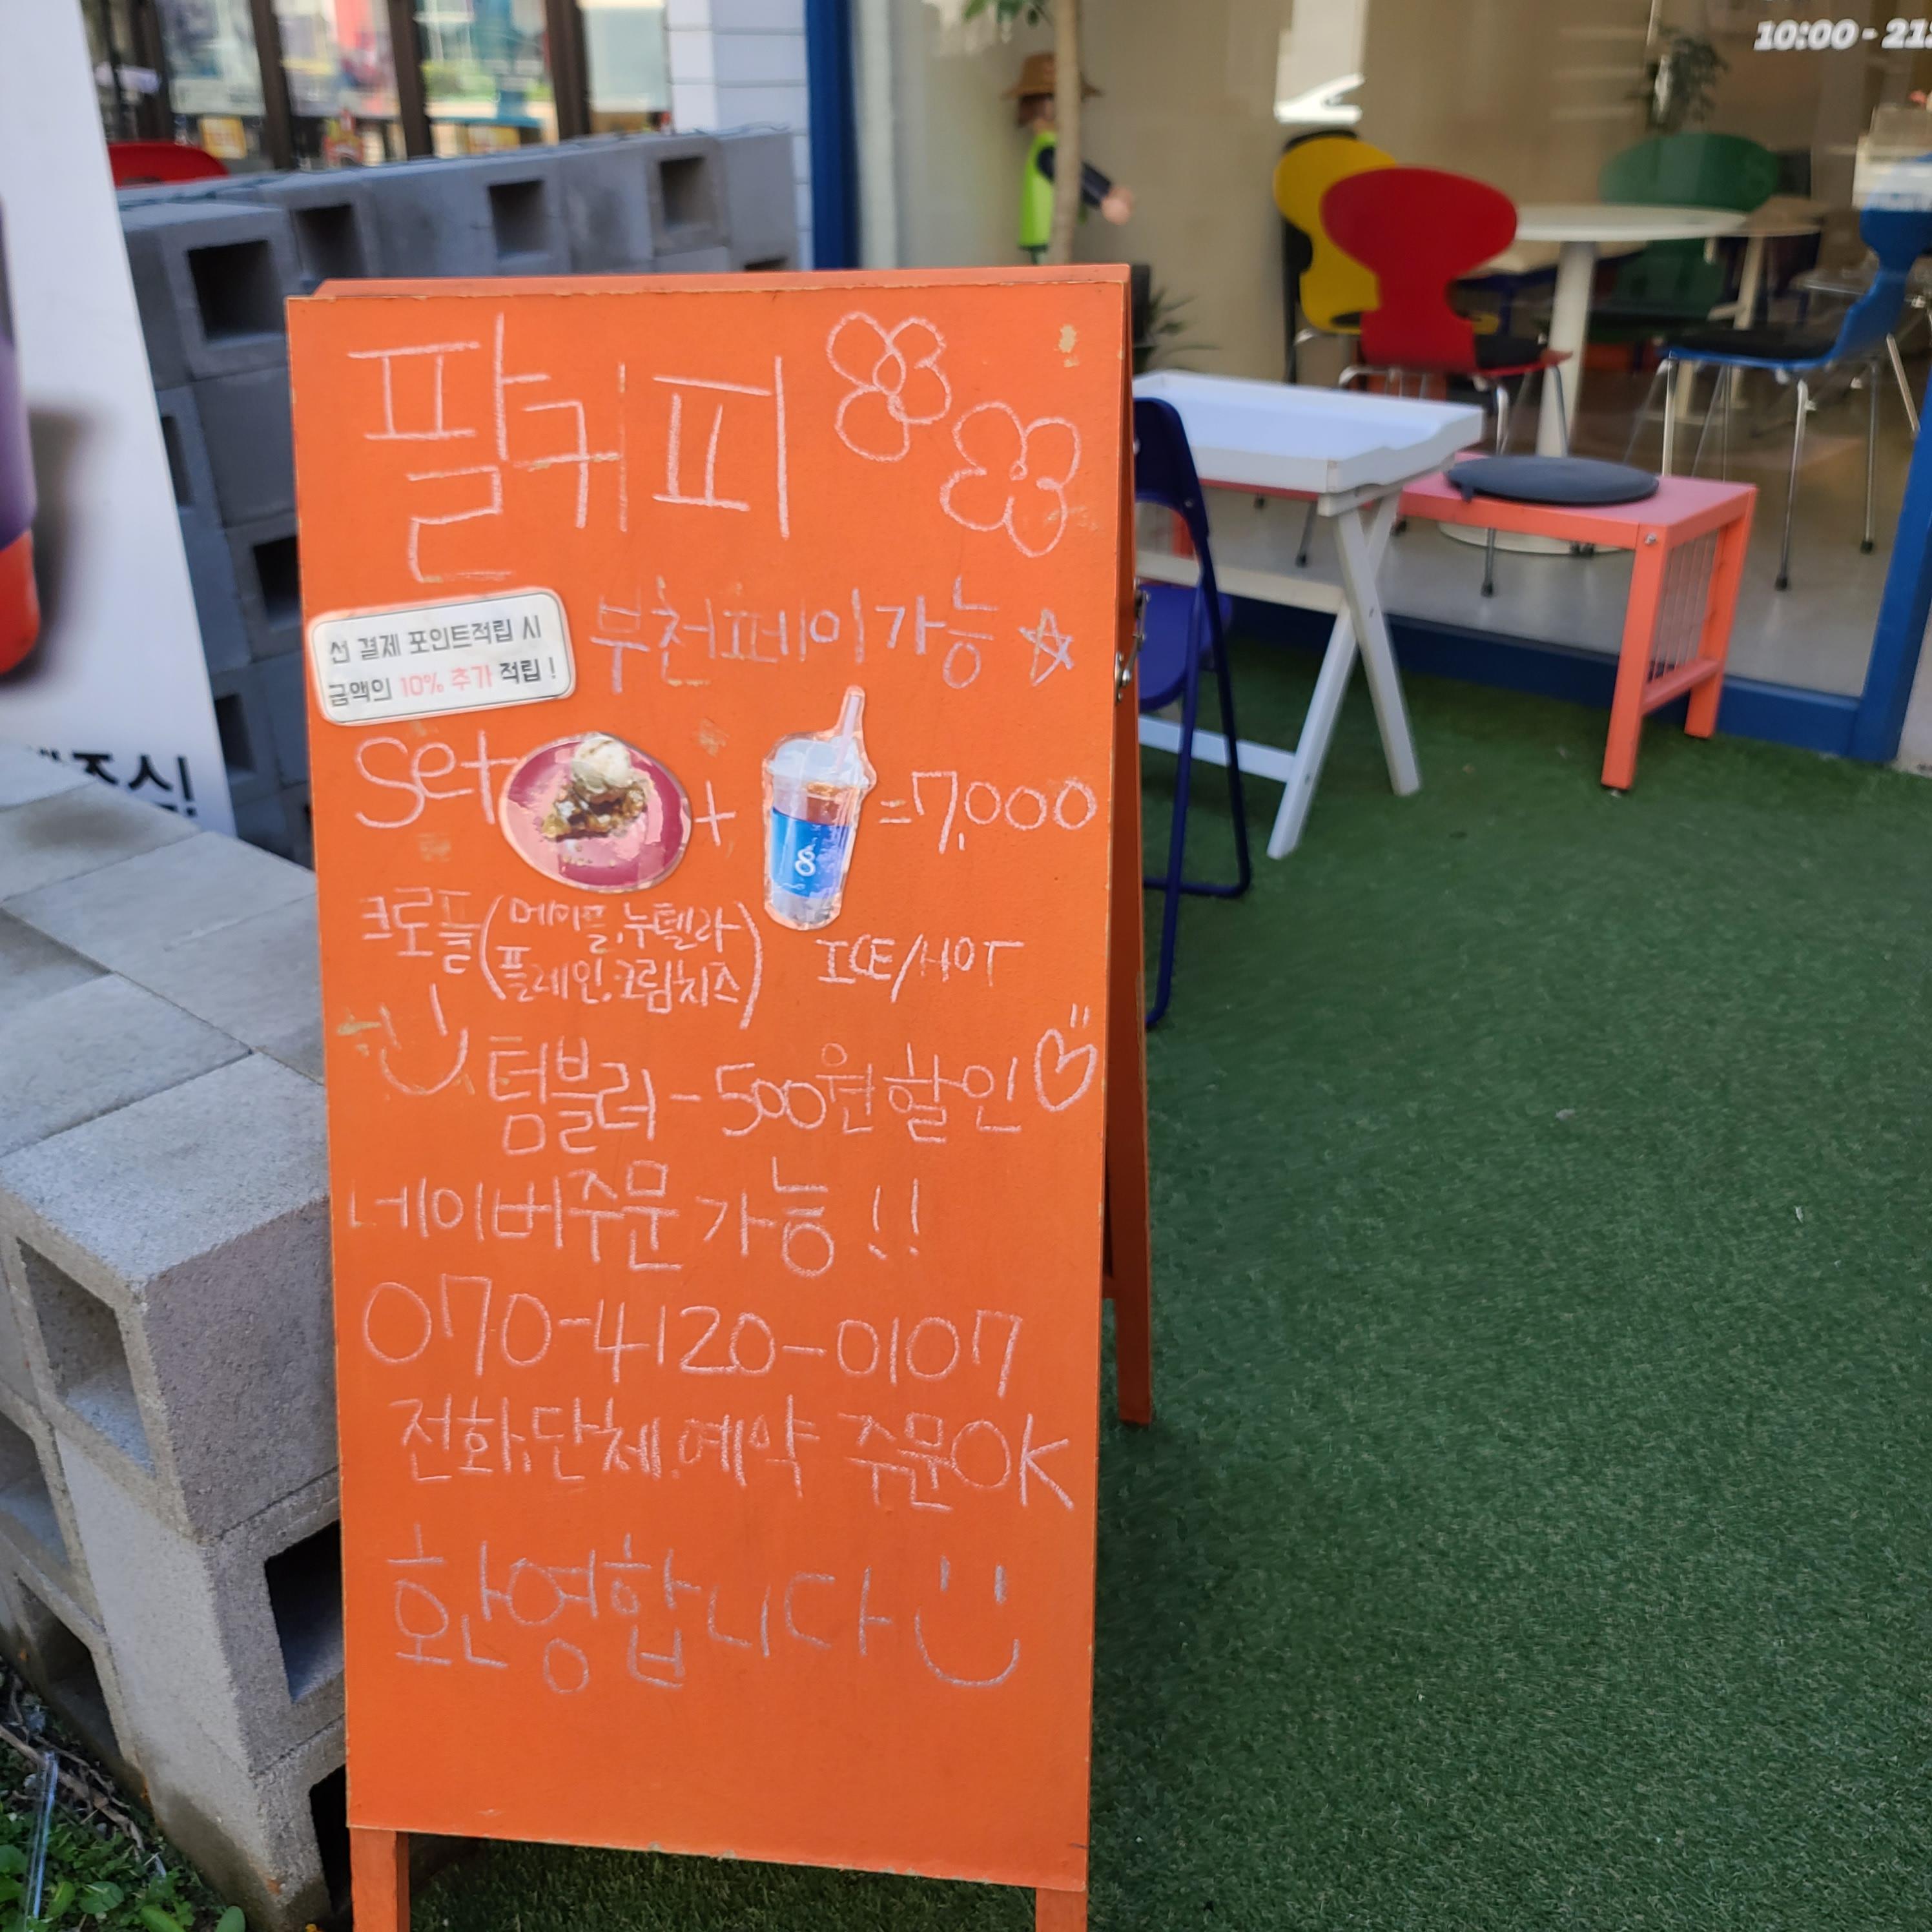 10:00 - 21:
팔커피
선 결제 포인트적립 시
금액의 10% 추가 적립 !
부천페이가능
set + = 7,000
8
크로플 (메이플, 누텔라
플레인, 크림치즈)
ICE/HOT
텀블러 - 500원 할인
네이버주문 가능!!
070-4120-0107
전화, 단체, 예약 주문OK
환영합니다